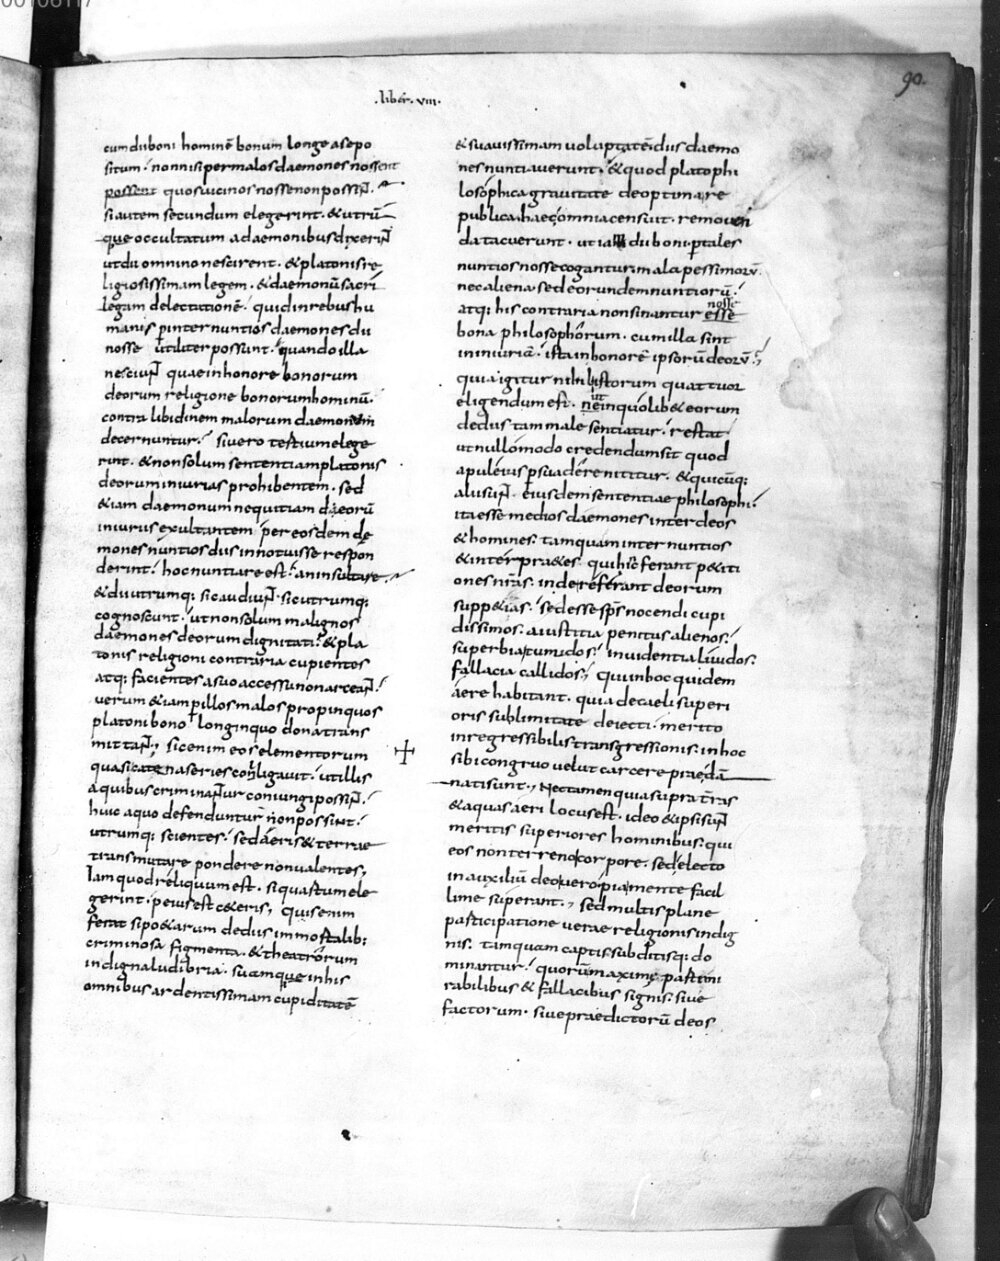 00106117
90.
.liber. viii.
cum dii boni hominē bonum longe a se po
situm. non nisi per malos daemones nossent
possent quos vicinos nosse non possīt.
si autem secundum elegerint. & utrū
que occultatum a daemonibus dixerīt
ut dii omnino nescirent. & platonis re
ligiosissimam legem. & daemonū sacri
legam delectationē. quid in rebus hu
manis p internuntios daemones dii
nosse utiliter possunt. quando illa
nesciūt quae in honore bonorum
deorum religione bonorum hominū.
contra libidinem malorum daemonum
decernuntur. si vero tertium elege
rint. & non solum sententiam platonis
deorum iniurias prohibentem. sed
& iam daemonum nequitiam deorū
iniuriis exultantem per eosdem de
mones nuntios diis innotuisse respon
derint. hoc nuntiare est. an insultare
& dii utrumq; sic audiūt. sic utrumq;
cognoscunt. ut non solum malignos
daemones deorum dignitati. & pla
tonis religioni contraria cupientes
atq; facientes a suo accessu non arceāt.
verum & iam p illos malos propinquos
platoni bono longinquo dona trans
mittāt; sic enim eos elementorum
quasi catenata series conligavit. ut illis
a quibus criminantur coniungi possīt.
huic a quo defenduntur non possint.
utrumq; scientes. sed aeris & terrae
transmutare pondere non valentes,
Iam quod reliquum est. si quartum ele
gerint. peius est ceteris, quis enim
ferat si poetarum de diis immortalib;
criminosa figmenta. & theatrorum
indigna ludibria. suamque in his
omnibus ardentissimam cupiditatē
& suavissimam voluptatē diis daemo
nes nuntiaverunt. & quod plato phi
losophica gravitate de optima re
publica haec omnia censuit. removen
da tacuerunt. ut iam dii boni p tales
nuntios nosse cogantur mala pessimorū.
nec aliena sed eorundem nuntiorū.
atq; his contraria non sinantur esse
nosse
bona philosophorum. cum illa sint
in iniuriā. ista in honorē ipsorū deorū.;
quia igitur nihil istorum quattuor
eligendum est. ne in quolib& eorum
ut
de diis tam male sentiatur. restat
ut nullo modo credendum sit quod
apuleius p suadere nititur. & quicūq;
alii sūt. eiusdem sententiae philosophi.
ita esse medios daemones inter deos
& homines. tamquam internuntios
& interpr&es. qui hinc ferant p&iti
ones nr̄as. inde referant deorum
supp&ias. sed esse sp̄s nocendi cupi
dissimos. a iustitia penitus alienos.
superbia tumidos. invidentia lividos.
fallacia callidos; qui in hoc quidem
aere habitant. quia de caeli superi
oris sublimitate deiecti. merito
inregressibilis transgressionis. in hoc
sibi congruo velut carcere praedā
nati sunt; Nec tamen quia supra terras
& aquas aeri locus est. ideo & ipsi sūt
meritis superiores hominibus. qui
eos non terreno corpore. sed electo
in auxiliū deo vero pia mente facil
lime superant; sed multis plane
participatione verae religionis indig
nis. tamquam captis subditisq; do
minantur. quorum maximę parti mi
rabilibus & fallacibus signis. sive
factorum. sive praedictorū deos